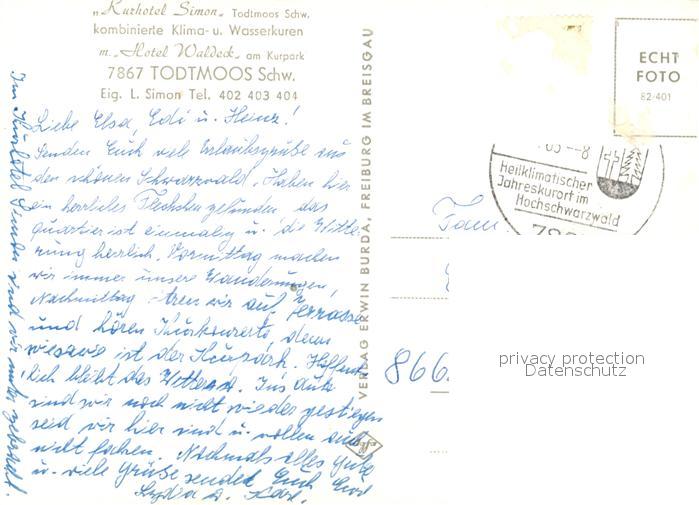 „Kurhotel Simon„ Todtmoos Schw.
kombinierte Klima- u. Wasserkuren
m. „Hotel Waldeck„ am Kurpark
7867 TODTMOOS Schw.
Eig. L. Simon Tel. 402 403 404
Liebe Elsa, Edi u. Heinz!
Senden Euch viele Urlaubsgrüße aus
den schönen Schwarzwald. Haben hier
ein herrliches Fleckchen gefunden das
Quartier ist einmalig u. die Witte-
rung herrlich. Vormittag machen
wir immer unsere Wanderungen,
Nachmittag sitzen wir auf Terrasse
und hören Kurkonzerte, denn
visavis ist der Kurpark. Hoffent-
lich bleibt das Wetter so. Ins Auto
sind wir noch nicht wieder gestiegen
seid wir hier sind u. wollen auch
nicht fahren. Nochmals alles Gute
u. viele Grüße sendet Euch
Lydia u. Karl.
Im Kurhotel Simon sind wir untergebracht.
VERLAG ERWIN BURDA, FREIBURG IM BREISGAU
ECHT
FOTO
82/401
Heilklimatischer
Jahreskurort im
Hochschwarzwald
Fam
866
privacy protection
Datenschutz